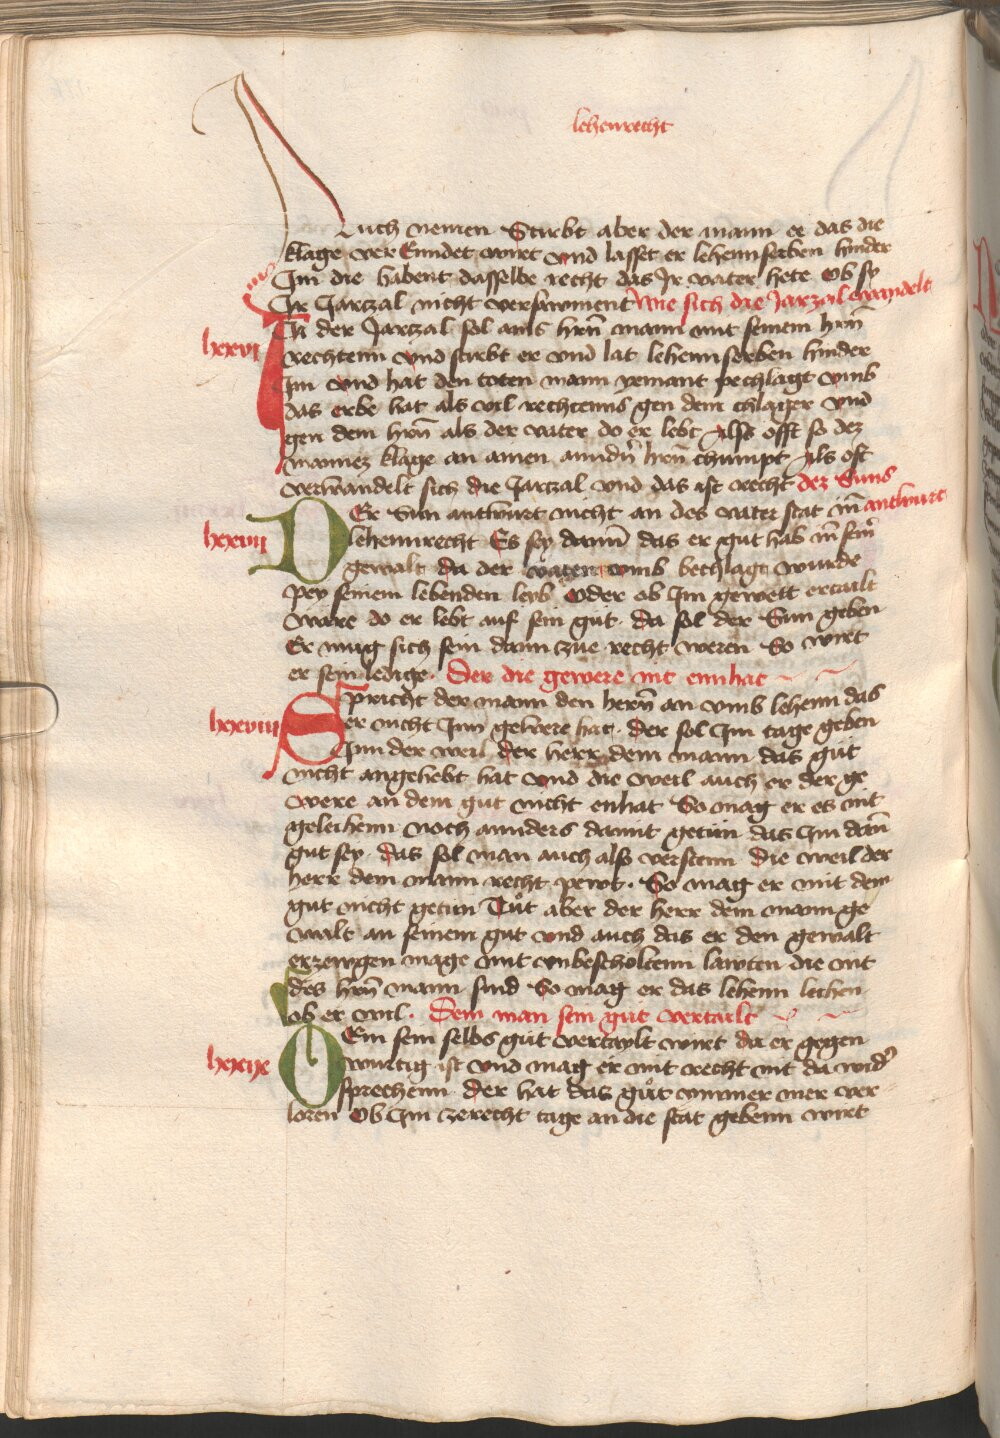 lehenrecht
Auch nemen Stirbt aber der mann ee das die
klage ver Enndet wirt vnd lasset er lehenns erben hinder
Im die habent dasselbe recht das Ir vater hete ob sy
Ir Jarczal nicht versawment Wie sich die Jarzal wanndelt
lxxvi In der Jarczal sol ains hrñ mann mit seinem hrñ
rechtenn vnd stirbt er vnd lat lehenns erben hinder
Im vnd hat den toten mann yemant pechlagt vmb
das erbe hat als vil rechtenns gen dem chlager vnd
gen dem hrñ als der vater do er lebt Also offt so dez
mannez klage an ainen anndñ herñ chumpt Als oft
verwandelt sich die Jarczal vnd das ist recht Dez Suns
lxxvii Der Sun antwurt nicht an des vater stat in antwurt
lehennrecht Es sey dann das er gut hab in seiñ
gewalt da der vater vmb bechlagt wurde
Pey seinem lebenden leyb Oder ob Im gewett ertailt
ware do er lebt auf sein gut. Da sol der Sun geben
Er mug sich sein dann zue recht weren So wirt
er sein ledige. Der die gewere nit ennhat
lxxviii Spricht der mann den herñ an vmb lehenn das
er nicht Inn gewere hat. der sol Im tage geben
Inn der weil der herr dem mann das gut
nicht angehebt hat vnd die weil auch er der ge
were an dem gut nicht enhat So mag er es nit
geleihenn noch annders damit getun das Im dañ
gut sey. das sol man auch also versteen Die weil der
herr dem mann recht pewt. So mag er mit dem
gut nicht getun Tut aber der herr dem mann ge
walt an seinem gut vnd auch das er den gewalt
erzewgen mage mit vnbescholtenn lawten die mit
des hrñ mann sind So mag er das lehenn leihen
ob er wil. Dem man sein gut vertailt
lxxix Dem sein selbs gut vertaylt wirt da er gegen
wurtig ist vnd mag er mit recht nit da wider
sprechenn. der hat das gut ymmer mer ver
loren Ob Im zerecht tage an die stat gebenn wirt